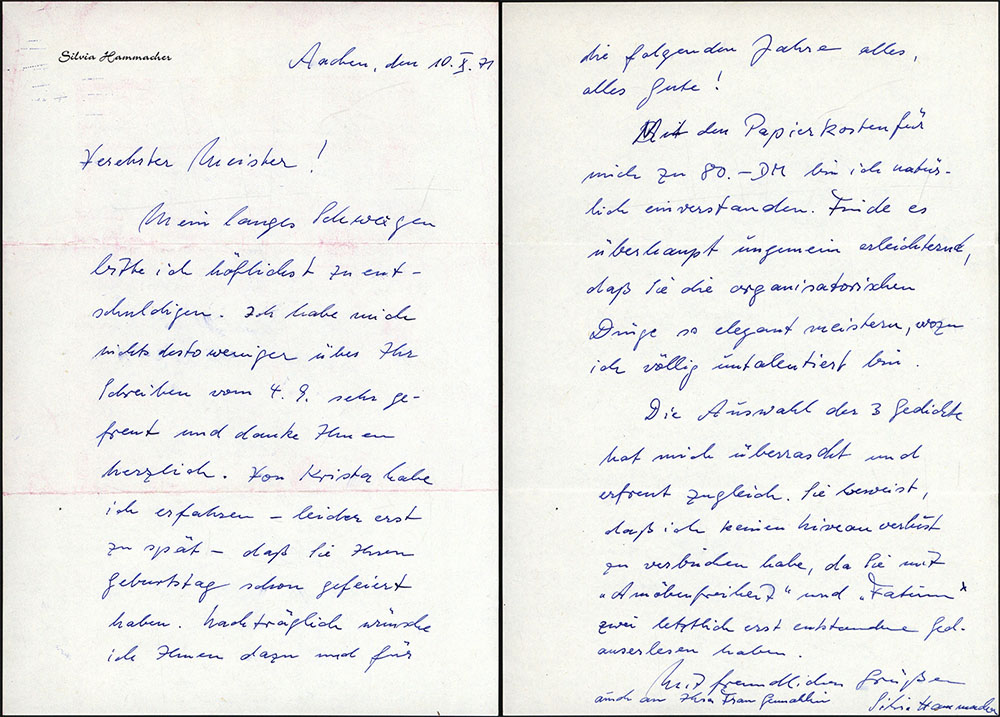 Silvia Hammacher
Aachen, den 10. X. 71
Verehrter Meister!
Mein langes Schweigen
bitte ich höflichst zu ent-
schuldigen. Ich habe mich
nichtsdestoweniger über Ihr
Schreiben vom 4. 9. sehr ge-
freut und danke Ihnen
herzlich. Von Krista habe
ich erfahren – leider erst
zu spät – daß Sie Ihren
Geburtstag schon gefeiert
haben. Nachträglich wünsche
ich Ihnen dazu und für
die folgenden Jahre alles,
alles Gute!
Mit den Papierkosten für
mich zu 80.– DM bin ich natür-
lich einverstanden. Finde es
überhaupt ungemein erleichternd,
daß Sie die organisatorischen
Dinge so elegant meistern, wozu
ich völlig untalentiert bin.
Die Auswahl der 3 Gedichte
hat mich überrascht und
erfreut zugleich. Sie beweist,
daß ich keinen Niveauverlust
zu verbuchen habe, da Sie mit
„Amöbenfreiheit“ und „Fatum“
zwei letztlich erst entstandene Ged.
auserlesen haben.
Mit freundlichen Grüßen
auch an Ihre Frau Gemahlin
Silvia Hammacher